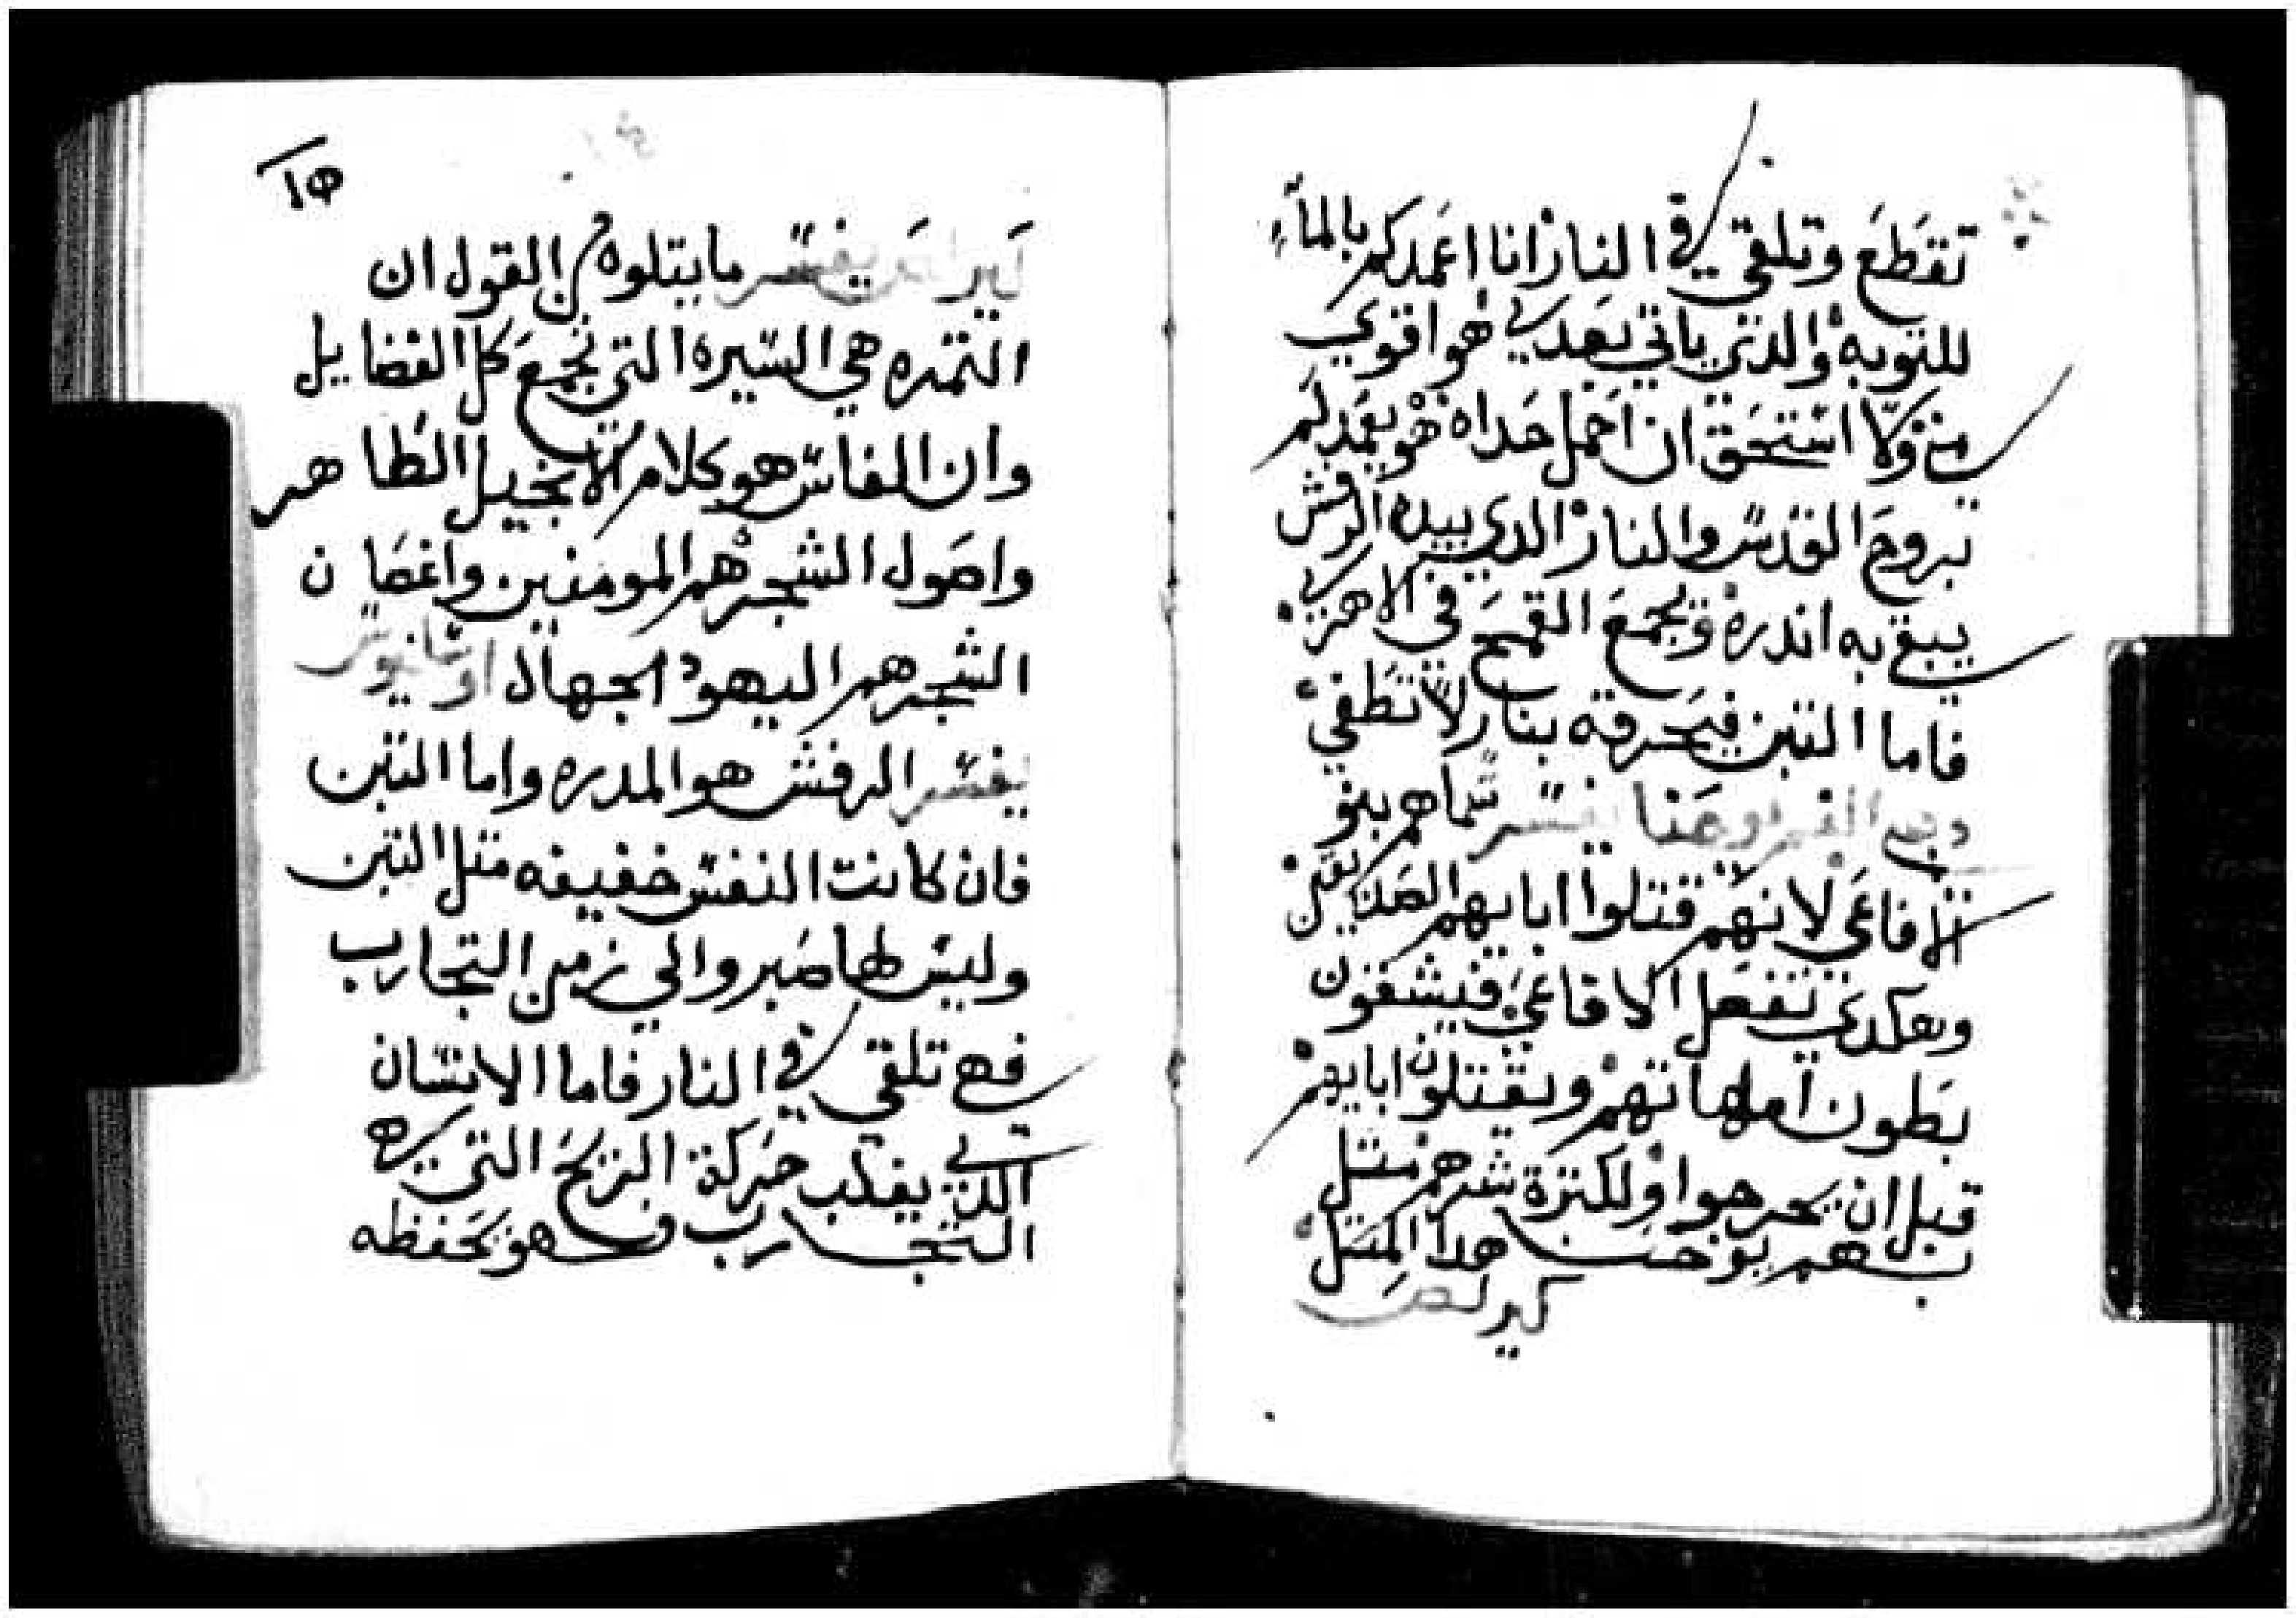 تقطع وتلقي في النار انا اعمدكم بالماء
للتوبه والدي ياتي بعدي هو اقوي
مني ولا استحق ان احمل حداه هو يعمدكم
بروح القدس والنار الدي بيده الرفش
ينقي به اندره ويجمع القمح في الاهري
فاما التبن فيحرقه بنار لا تطفي
يفسر سماهم بنو
الافاعي لانهم قتلوا ابايهم الصديقين
وهكدي تفعل الافاعي فيشقون
بطون امهاتهم ويقتلون ابايهم
قبل ان يخرجوا ولكثرة شرهم مثل
بهم يوحنا هدا المثل
كيرلص
١٥
يفسر ما يتلوه من القول ان
الثمره هي السيره التي تجمع كل الفضايل
وان الفاس هو كلام الانجيل الطاهر
واصول الشجر هم المومنين واغصان
الشجر هم اليهود الجهال
يفسر الرفش هو المدره واما التبن
فان كانت النفس خفيفه متل التبن
وليس لها صبر والي زمن التجارب
فهي تلقي في النار فاما الانسان
الدي يغلب حركة الريح التي هي
التجارب فهو يحفظه